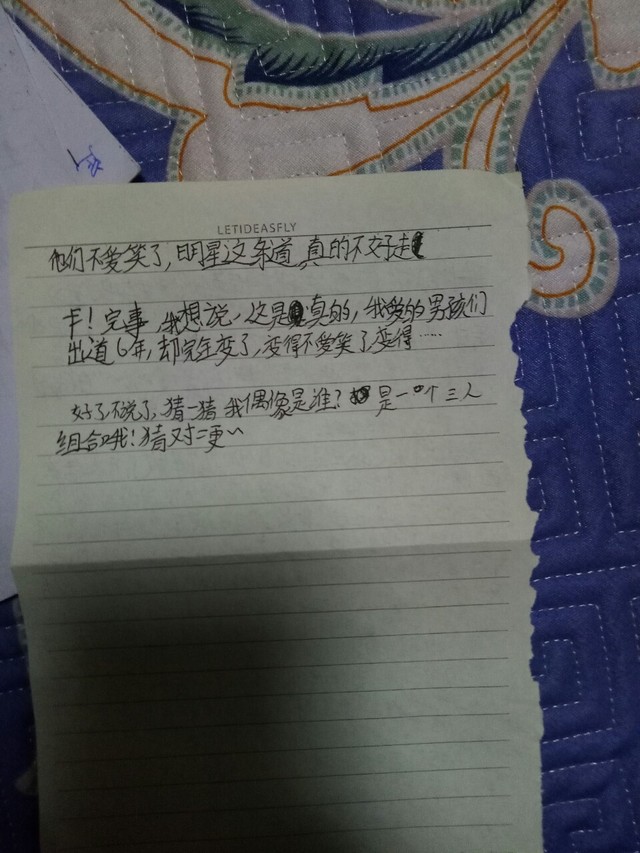 LETIDEASFLY
他们不爱笑了,明星这条道,真的不好走
卡!完事,我想说,这是真的,我爱的男孩们
出道6年,却完全变了,变得不爱笑了变得……
好了不说了,猜一猜我偶像是谁?是一个三人
组合哦!猜对二更~